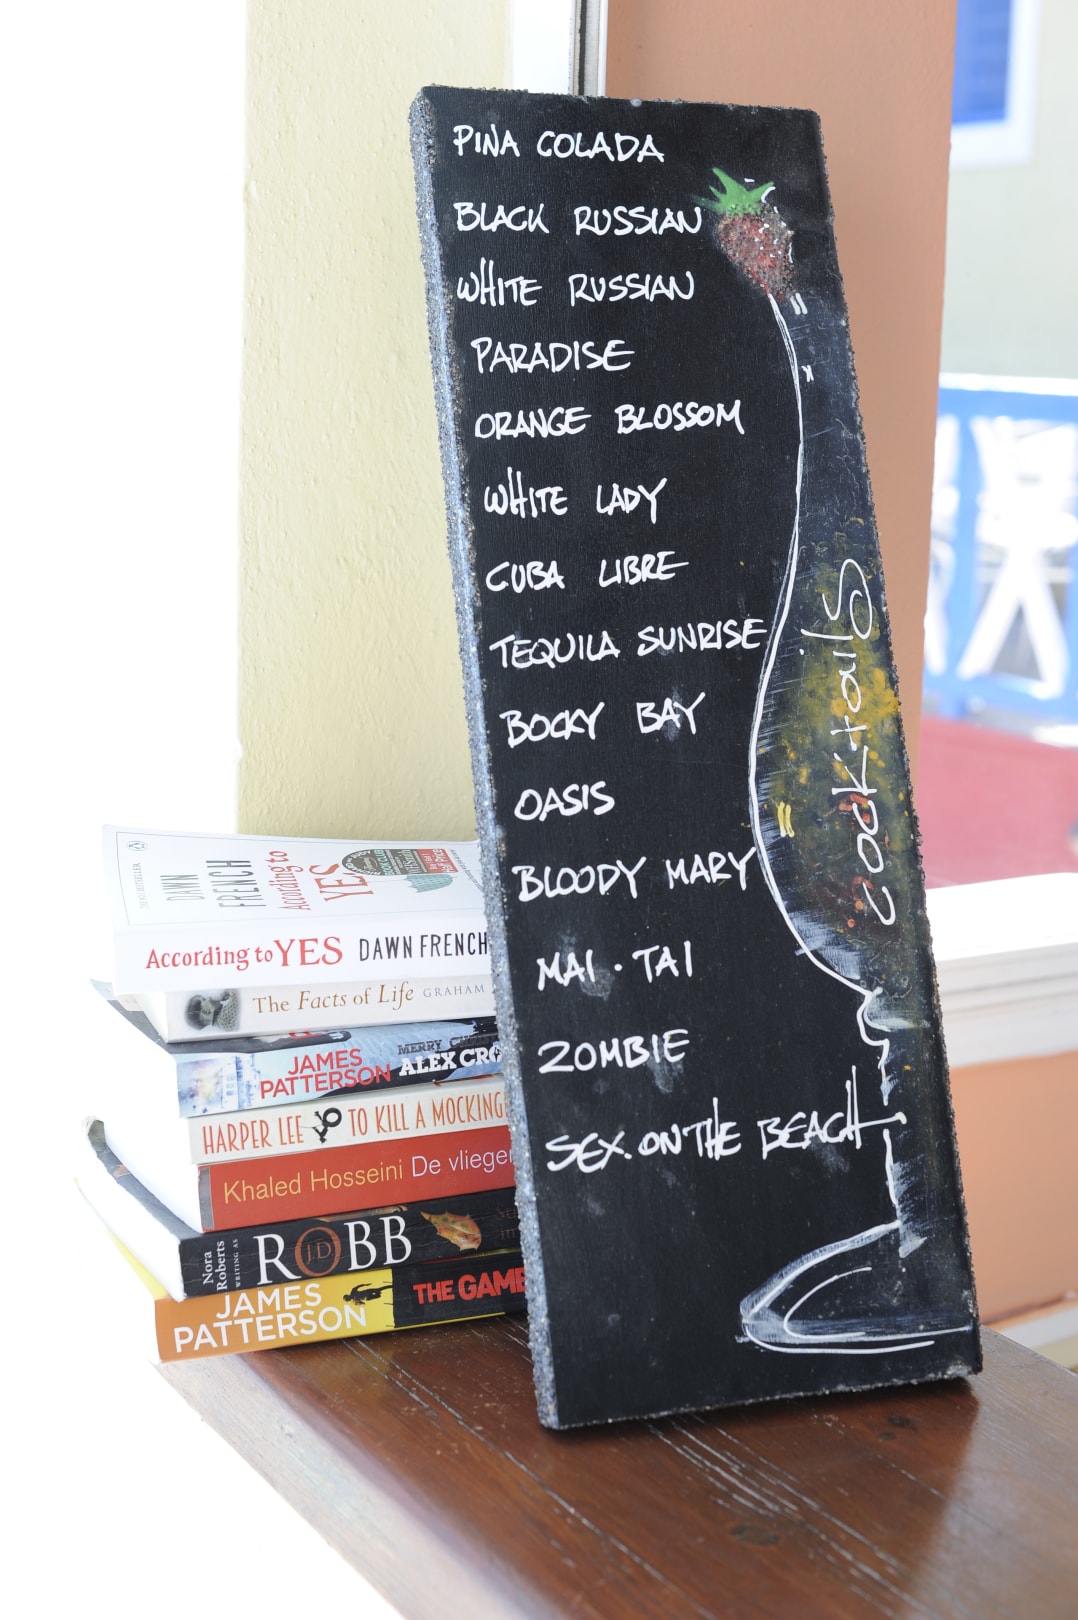 PINA COLADA
BLACK RUSSIAN
WHITE RUSSIAN
PARADISE
ORANGE BLOSSOM
WHITE LADY
CUBA LIBRE
TEQUILA SUNRISE
BOCKY BAY
OASIS
BLOODY MARY
MAI · TAI
ZOMBIE
SEX.ON THE BEACH
cocktails
DAWN
FRENCH
According to
YES
According to YES DAWN FRENCH
The Facts of Life GRAHAM
JAMES
PATTERSON
MERRY
ALEX CRO
HARPER LEE TO KILL A MOCKING
Khaled Hosseini De vlieger
Nora
Roberts
WRITING AS
J.D.
ROBB
JAMES
PATTERSON
THE GAME